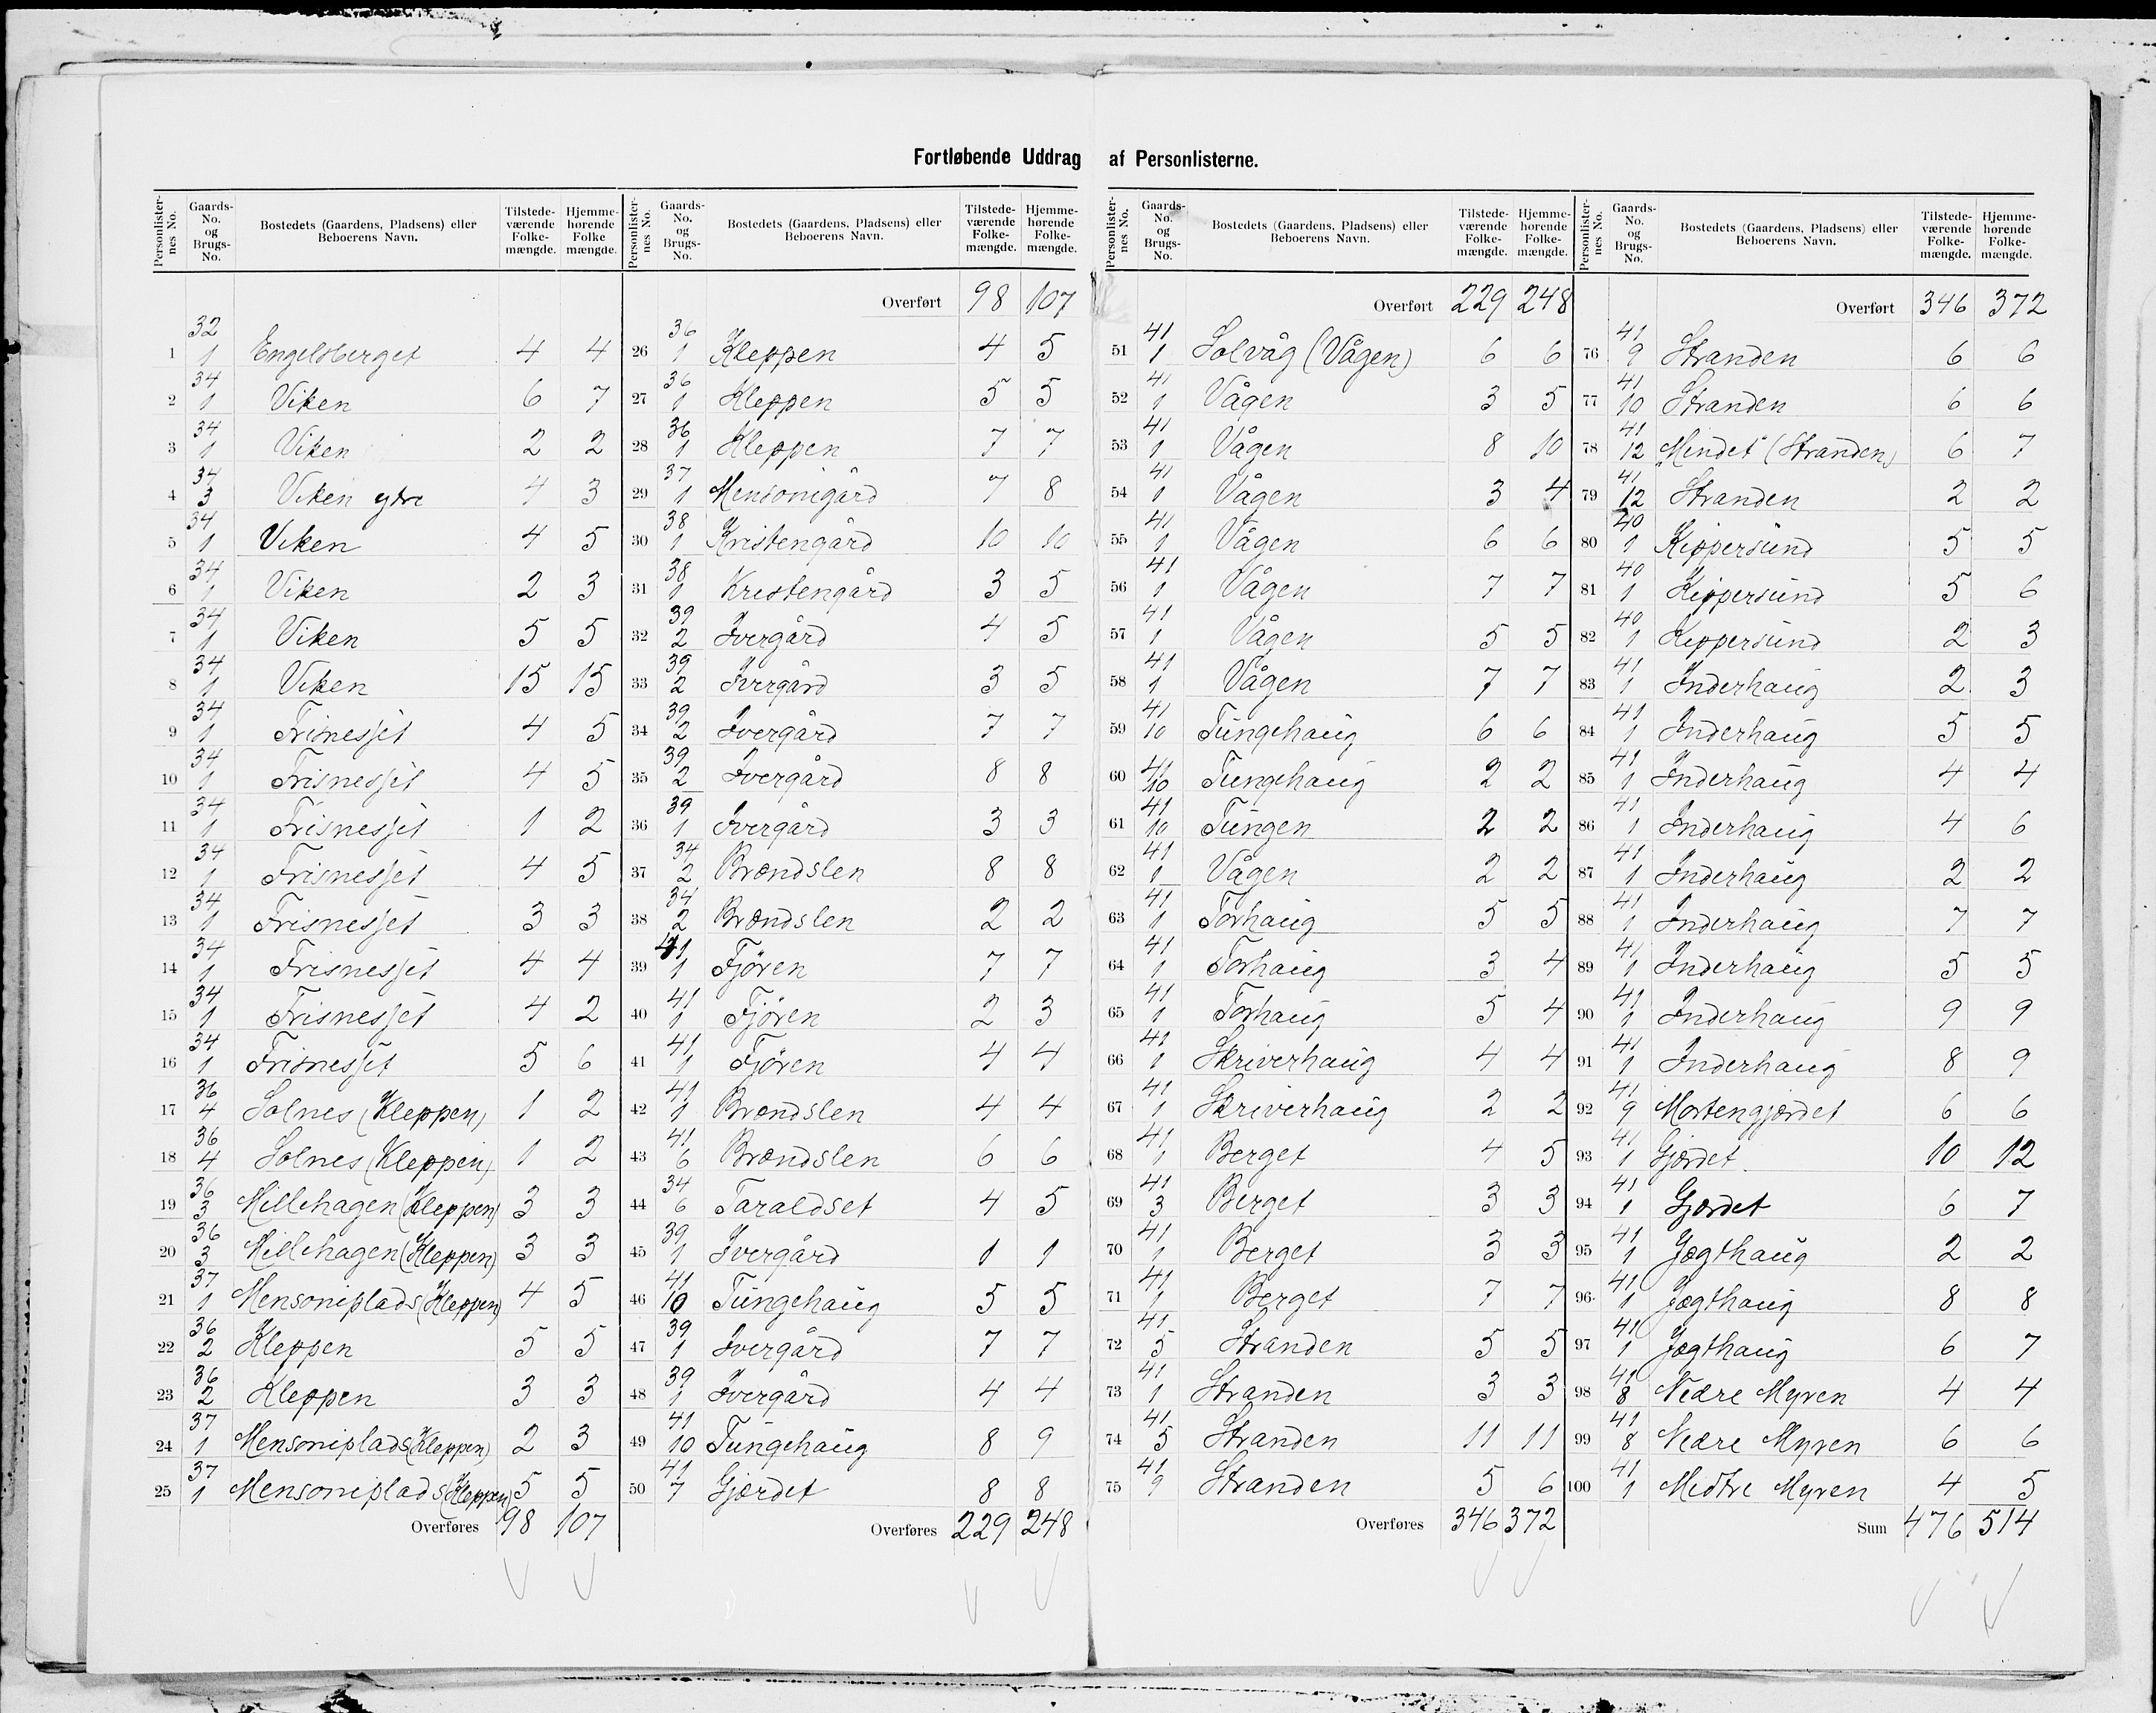 Fortløbende Uddrag af Personlisterne.
Personlisternes No. Gaards-No. og Brugs-No. Bostedets (Gaardens, Pladsens) eller Beboerens Navn. Tilstedeværende Folkemængde. Hjemmehørende Folkemængde.
1 32/1 Engelsberget 4 4
2 34/1 Viken 6 7
3 34/1 Viken 2 2
4 34/3 Viken ytre 4 3
5 34/1 Viken 4 5
6 34/1 Viken 2 3
7 34/1 Viken 5 5
8 34/1 Viken 15 15
9 34/1 Frisnesset 4 5
10 34/1 Frisnesset 4 5
11 34/1 Frisnesset 1 2
12 34/1 Frisnesset 4 5
13 34/1 Frisnesset 3 3
14 34/1 Frisnesset 4 4
15 34/1 Frisnesset 4 2
16 34/1 Frisnesset 5 6
17 36/4 Solnes (Kleppen) 1 2
18 36/4 Solnes (Kleppen) 1 2
19 36/3 Millehagen (Kleppen) 3 3
20 36/3 Millehagen (Kleppen) 3 3
21 37/1 Mensoniplads (Kleppen) 4 5
22 36/2 Kleppen 5 5
23 36/2 Kleppen 3 3
24 37/1 Mensoniplads (Kleppen) 2 3
25 37/1 Mensoniplads (Kleppen) 5 5
Overføres 98 107
Personlisternes No. Gaards-No. og Brugs-No. Bostedets (Gaardens, Pladsens) eller Beboerens Navn. Tilstedeværende Folkemængde. Hjemmehørende Folkemængde.
Overført 98 107
26 36/1 Kleppen 4 5
27 36/1 Kleppen 5 5
28 36/1 Kleppen 7 7
29 37/1 Mensonigård 7 8
30 38/1 Kristengård 10 10
31 38/1 Kristengård 3 5
32 39/2 Ivergård 4 5
33 39/2 Ivergård 3 5
34 39/2 Ivergård 7 7
35 39/2 Ivergård 8 8
36 39/1 Ivergård 3 3
37 34/2 Brændslen 8 8
38 34/2 Brændslen 2 2
39 41/1 Fjören 7 7
40 41/1 Fjören 2 3
41 41/1 Fjören 4 4
42 41/1 Brændslen 4 4
43 41/6 Brændslen 6 6
44 34/6 Taraldset 4 5
45 39/1 Ivergård 1 1
46 41/10 Tungehaug 5 5
47 39/1 Ivergård 7 7
48 39/1 Ivergård 4 4
49 41/10 Tungehaug 8 9
50 41/7 Gjærdet 8 8
Overføres 229 248
Personlisternes No. Gaards-No. og Brugs-No. Bostedets (Gaardens, Pladsens) eller Beboerens Navn. Tilstedeværende Folkemængde. Hjemmehørende Folkemængde.
Overført 229 248
51 41/1 Solvåg (Vågen) 6 6
52 41/1 Vågen 3 5
53 41/1 Vågen 8 10
54 41/1 Vågen 3 4
55 41/1 Vågen 6 6
56 41/1 Vågen 7 7
57 41/1 Vågen 5 5
58 41/1 Vågen 7 7
59 41/10 Tungehaug 6 6
60 41/10 Tungehaug 2 2
61 41/10 Tungen 2 2
62 41/1 Vågen 2 2
63 41/1 Torhaug 5 5
64 41/1 Torhaug 3 4
65 41/1 Torhaug 5 4
66 41/1 Skriverhaug 4 4
67 41/1 Skriverhaug 2 2
68 41/1 Berget 4 5
69 41/3 Berget 3 3
70 41/1 Berget 3 3
71 41/1 Berget 7 7
72 41/5 Stranden 5 5
73 41/1 Stranden 3 3
74 41/5 Stranden 11 11
75 41/9 Stranden 5 6
Overføres 346 372
Personlisternes No. Gaards-No. og Brugs-No. Bostedets (Gaardens, Pladsens) eller Beboerens Navn. Tilstedeværende Folkemængde. Hjemmehørende Folkemængde.
Overført 346 372
76 41/9 Stranden 6 6
77 41/10 Stranden 6 6
78 41/12 „Mindet" (Stranden) 6 7
79 41/12 Stranden 2 2
80 40/1 Kippersund 5 5
81 40/1 Kippersund 5 6
82 40/1 Kippersund 2 3
83 41/1 Inderhaug 2 3
84 41/1 Inderhaug 5 5
85 41/1 Inderhaug 4 4
86 41/1 Inderhaug 4 6
87 41/1 Inderhaug 2 2
88 41/1 Inderhaug 7 7
89 41/1 Inderhaug 5 5
90 41/1 Inderhaug 9 9
91 41/1 Inderhaug 8 9
92 41/9 Mortengjærdet 6 6
93 41/1 Gjærdet 10 12
94 41/1 Gjærdet 6 7
95 41/1 Jægthaug 2 2
96 41/1 Jægthaug 8 8
97 41/1 Jægthaug 6 7
98 41/8 Nedre Myren 4 4
99 41/8 Nedre Myren 6 6
100 41/1 Midtre Myren 4 5
Sum 476 514